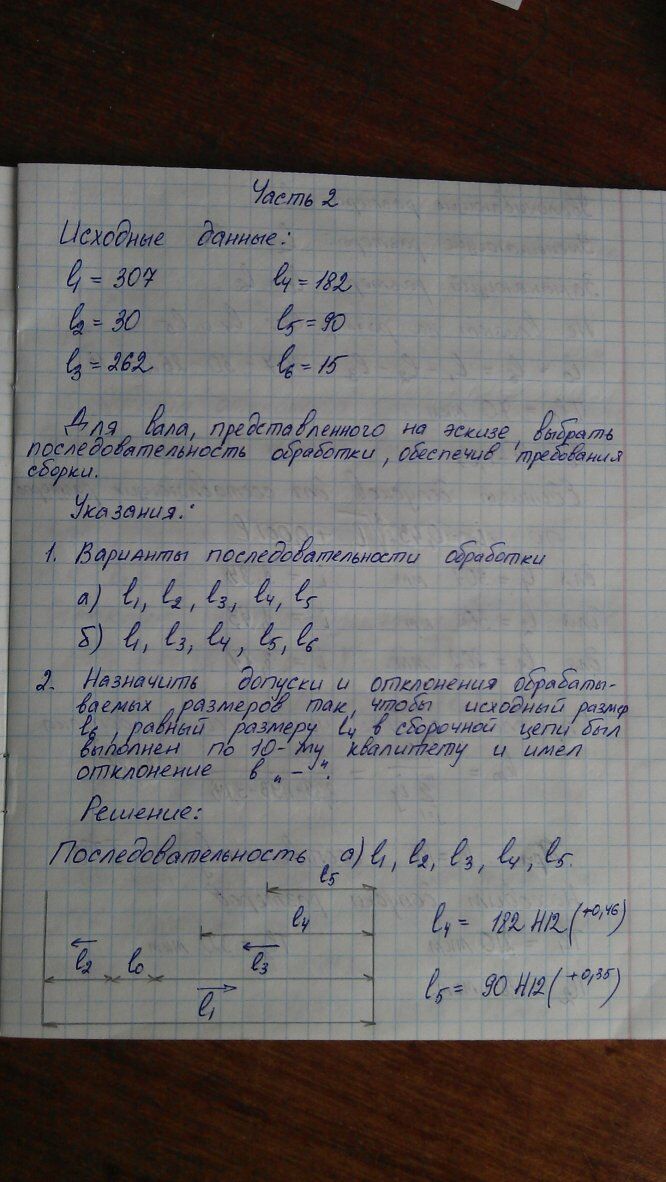 Часть 2
Исходные данные:
l1 = 307 l4 = 182
l2 = 30 l5 = 90
l3 = 262 l6 = 15
Для вала, представленного на эскизе, выбрать
последовательность обработки, обеспечив требования
сборки.
Указания:
1. Варианты последовательности обработки
а) l1, l2, l3, l4, l5
б) l1, l3, l4, l5, l6
2. Назначить допуски и отклонения обрабаты-
ваемых размеров так, чтобы исходный размер
l6, равный размеру l4 в сборочной цепи был
выполнен по 10-му квалитету и имел
отклонение в „-“.
Решение:
Последовательность а) l1, l2, l3, l4, l5.
l5
l4 l4 = 182 H12(+0,46)
l2 l0 l3
l5 = 90 H12(+0,35)
l1